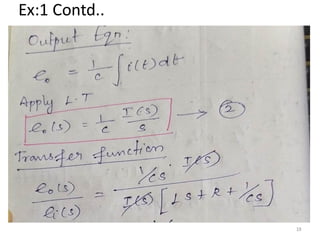 Ex:1 Contd..
Output Eqn:
e₀ = 1/c ∫ i(t) dt
Apply L.T
e₀(s) = 1/c I(s)/s → ②
Transfer function
e₀(s)/ei(s) = 1/cs . I(s) / I(s) [Ls + R + 1/cs]